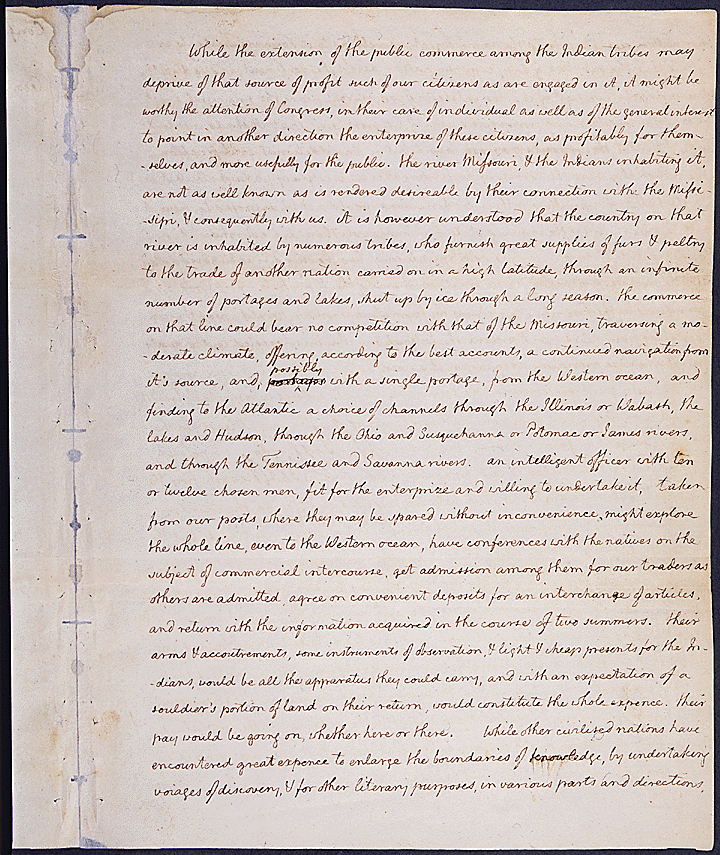 While the extension of the public commerce among the Indian tribes may
deprive of that source of profit such of our citizens as are engaged in it, it might be
worthy the attention of Congress, in their care of individual as well as of the general interest
to point in another direction the enterprize of these citizens, as profitably for them-
-selves, and more usefully for the public. the river Missouri, & the Indians inhabiting it,
are not as well known as is rendered desireable by their connection with the Missi-
-sipi, & consequently with us. it is however understood that the country on that
river is inhabited by numerous tribes, who furnish great supplies of furs & peltry
to the trade of another nation carried on in a high latitude, through an infinite
number of portages and lakes, shut up by ice through a long season. the commerce
on that line could bear no competition with that of the Missouri, traversing a mo-
-derate climate, offering, according to the best accounts, a continued navigation from
possibly
it's source, and, with a single portage, from the Western ocean, and
finding to the Atlantic a choice of channels through the Illinois or Wabash, the
lakes and Hudson, through the Ohio and Susquehanna or Potomac or James rivers,
and through the Tennissee and Savanna rivers. an intelligent officer with ten
or twelve chosen men, fit for the enterprize and willing to undertake it, taken
from our posts, where they may be spared without inconvenience, might explore
the whole line, even to the Western ocean, have conferences with the natives on the
subject of commercial intercourse, get admission among them for our traders as
others are admitted, agree on convenient deposits for an interchange of articles,
and return with the information acquired in the course of two summers. their
arms & accoutrements, some instruments of observation, & light & cheap presents for the In-
-dians, would be all the apparatus they could carry, and with an expectation of a
souldier's portion of land on their return, would constitute the whole expence. their
pay would be going on, whether here or there. While other civilized nations have
encountered great expence to enlarge the boundaries of knowledge, by undertaking
voiages of discovery, & for other literary purposes, in various parts and directions,